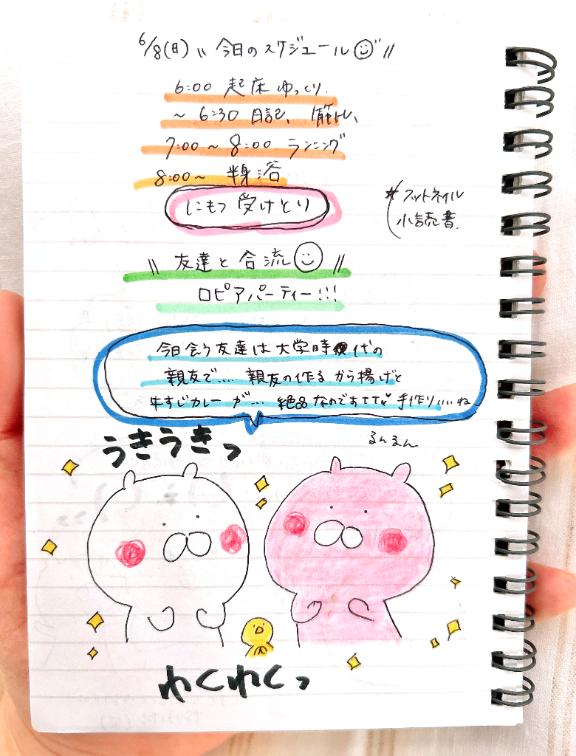 6/8(日) 〃今日のスケジュール〃
6:00 起床 ゆっくり.
〜 6:30 日記、筋トレ、
7:00〜8:00 ランニング
8:00〜 半身浴
にもつ 受けとり
*フットネイル
小読書.
\\ 友達と合流 //
ロピアパーティー!!!
今日会う友達は大学時代の
親友で.... 親友の作るから揚げと
牛すじカレーが... 絶品なのですててﾞ♡手作り....ね
るんるん
うきうきっ
わくわくっ